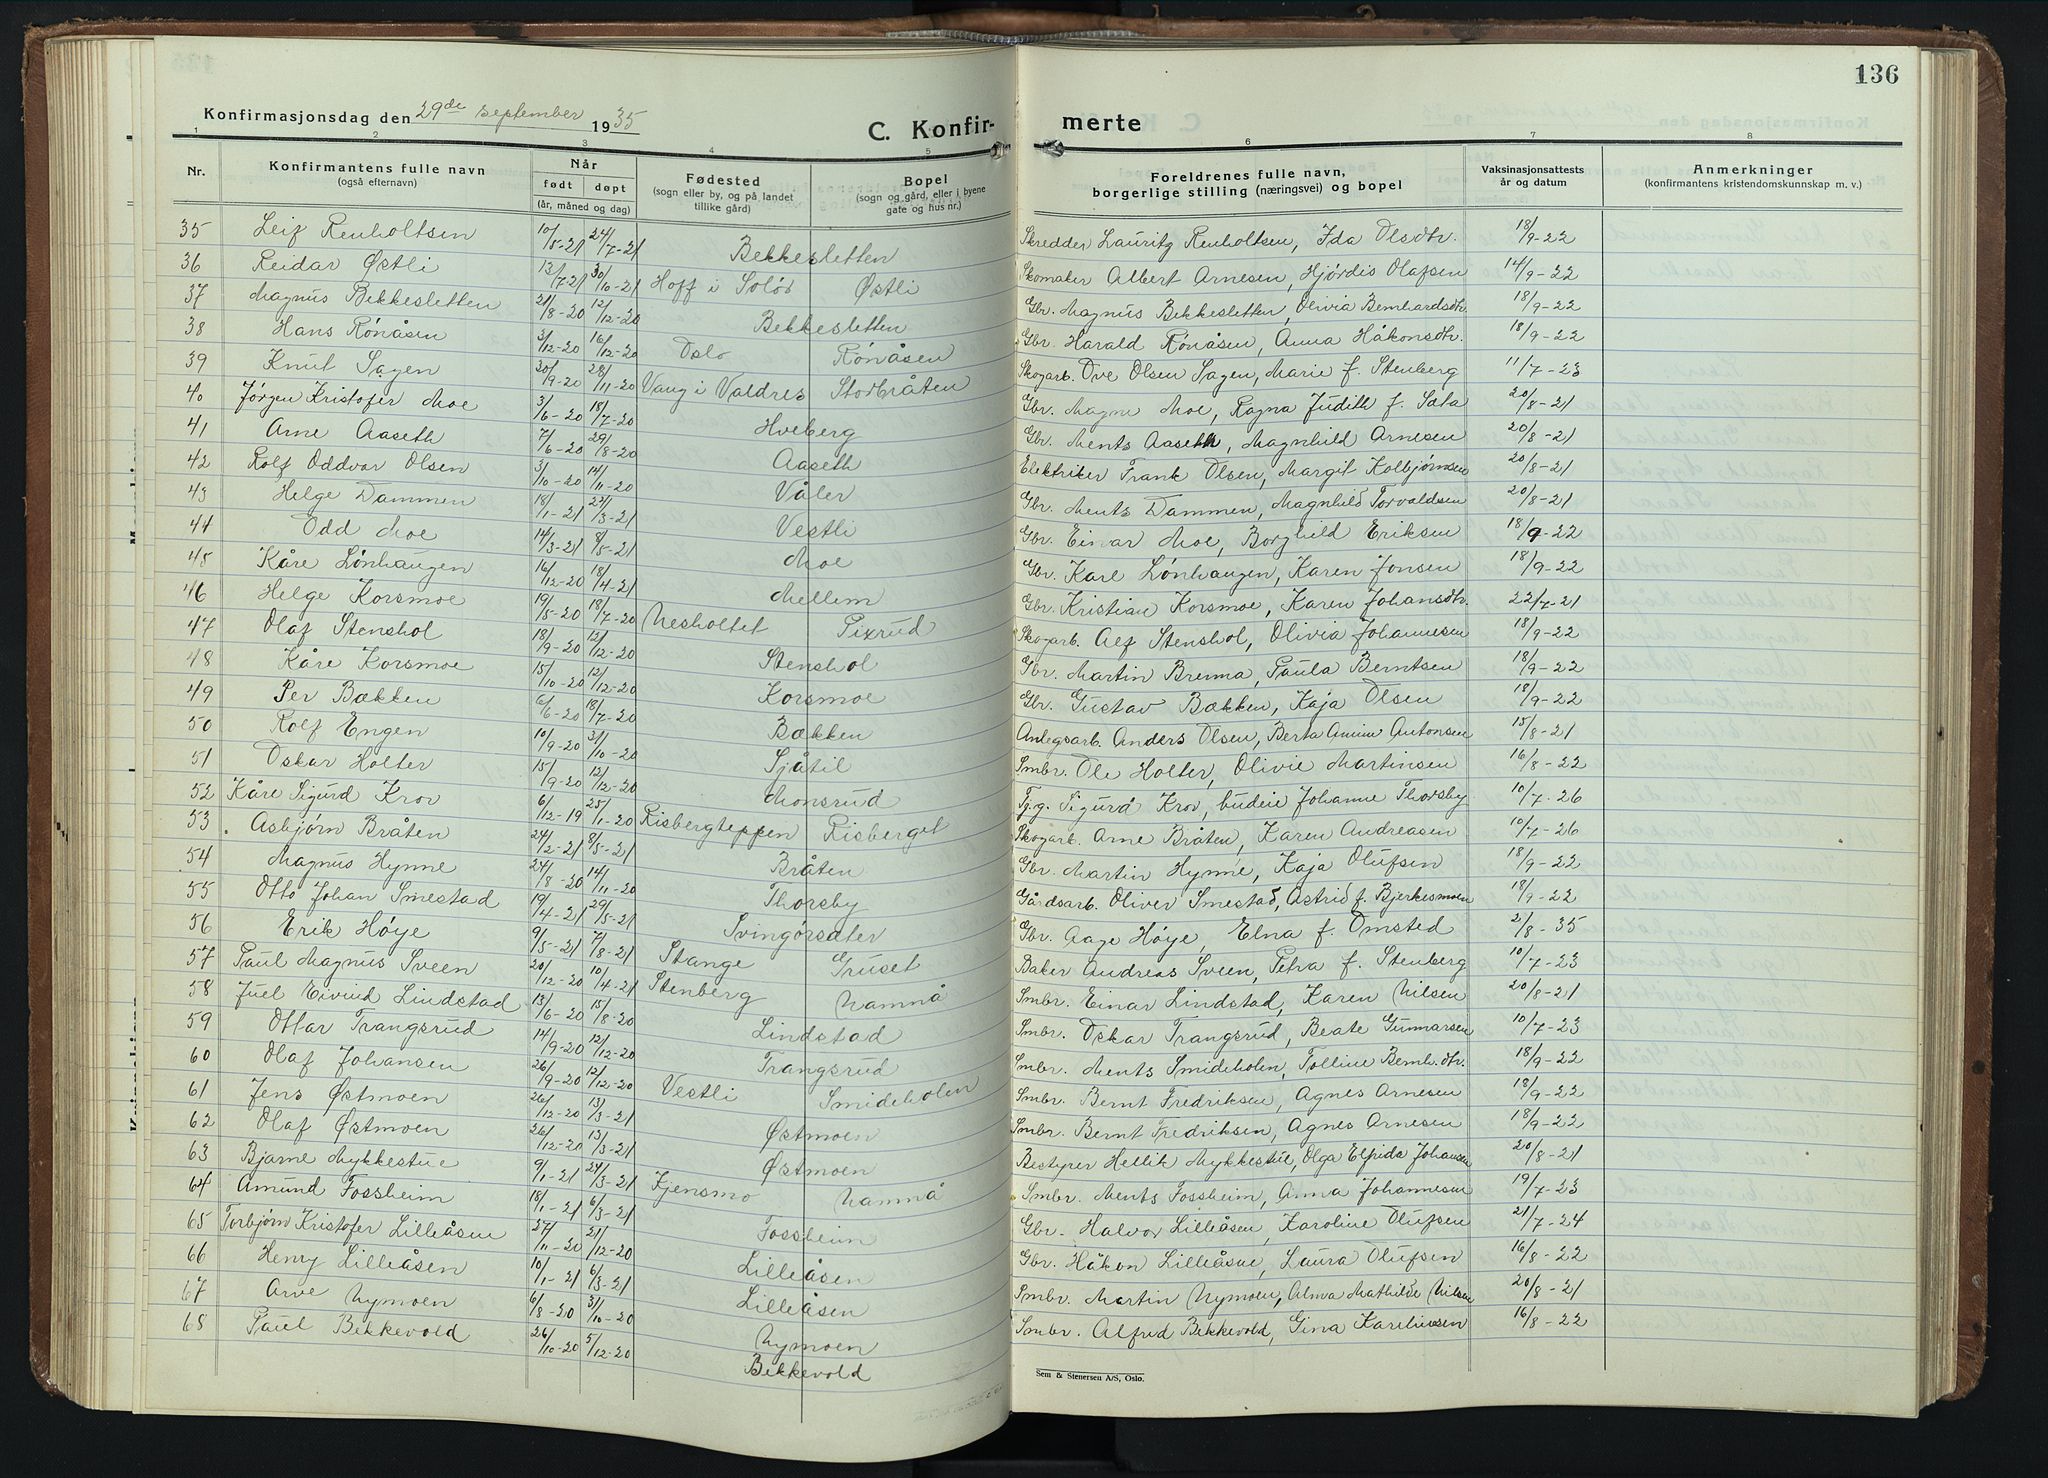 136
Konfirmasjonsdag den 29de september 1935
C. Konfir-
merte
1 2 3 4 5 6 7 8
Nr. Konfirmantens fulle navn (også efternavn) Når født døpt (år, måned og dag) Fødested (sogn eller by, og på landet tillike gård) Bopel (sogn og gård, eller i byene gate og hus nr.) Foreldrenes fulle navn, borgerlige stilling (næringsvei) og bopel Vaksinasjonsattests år og datum Anmerkninger (konfirmantens kristendomskunnskap m. v.)
35 Leif Renholtsen 10/5-21 24/7-21 Bekkesletten Skredder Lauritz Renholtsen, Ida Olsdtr. 18/9-22
36 Reidar Østli 13/7-21 30/10-21 Hoff i Solør Østli Skomaker Albert Arnesen, Hjørdis Olafsen 14/9-22
37 Magnus Bekkesletten 21/8-20 12/12-20 Bekkesletten Gbr. Magnus Bekkesletten, Olivia Bernhardsdtr. 18/9-22
38 Hans Rønåsen 3/12-20 16/12-20 Oslo Rønåsen Gbr. Harald Rønåsen, Anna Håkonsdtr. 18/9-22
39 Knut Sagen 20/9-20 28/11-20 Vang i Valdres Storbråten Skogarb. Ove Olsen Sagen, Marie f. Stenberg 11/7-23
40 Jørgen Kristofer Moe 3/6-20 18/7-20 Hveberg Gbr. Magne Moe, Ragna Judith f. Sæta 20/8-21
41 Arne Aaseth 7/6-20 29/8-20 Aaseth Gbr. Ments Aaseth, Magnhild Arnesen 20/8-21
42 Rolf Oddvar Olsen 3/10-20 14/11-20 Våler Elektriker Frank Olsen, Margit Kolbjørnsen 20/8-21
43 Helge Dammen 18/1-21 22/3-21 Vestli Gbr. Ments Dammen, Magnhild Torvaldsen 20/8-21
44 Odd Moe 14/3-21 8/5-21 Moe Gbr. Einar Moe, Borghild Eriksen 18/9-22
45 Kåre Lønhaugen 16/12-20 18/4-21 Mellem Gbr. Karl Lønhaugen, Karen Jonsen 18/9-22
46 Helge Korsmoe 19/5-20 18/7-20 Nesholtet Pixrud Gbr. Kristian Korsmoe, Karen Johansdtr. 22/7-21
47 Olaf Stenshol 18/9-20 12/12-20 Stenshol Skogarb. Alf Stenshol, Olivia Johannesen 18/9-22
48 Kåre Korsmoe 15/10-20 12/12-20 Korsmoe Gbr. Martin Brenna, Paula Berntsen 18/9-22
49 Per Bækken 6/6-20 18/7-20 Bækken Gbr. Gustav Bækken, Kaja Olsen 18/9-22
50 Rolf Engen 10/9-20 3/10-20 Sjåtil Anlegsarb. Anders Olsen, Berta Amine Antonsen 15/8-21
51 Oskar Holter 15/9-20 12/12-20 Monsrud Smbr. Ole Holter, Olivie Martinsen 16/8-22
52 Kåre Sigurd Krov 6/12-19 25/1-20 Risbergteppen Risberget Tj.g. Sigurd Krov, budeie Johanne Thorsby 10/7-26
53 Asbjørn Bråten 24/2-21 8/5-21 Bråten Skogarb. Arne Bråten, Karen Andreasen 10/7-26
54 Magnus Hynne 24/8-20 14/11-20 Thorsby Gbr. Martin Hynne, Kaja Olufsen 18/9-22
55 Otto Johan Smestad 19/4-21 29/5-21 Svingørsæter Gårdsarb. Oliver Smestad, Astrid f. Bjerkesmoen 18/9-22
56 Erik Høye 9/5-21 7/8-21 Stange Gruset Gbr. Aage Høye, Elna f. Omsted 2/8-35
57 Paul Magnus Sveen 20/12-20 10/4-21 Stenberg Namnå Baker Andreas Sveen, Petra f. Stenberg 10/7-23
58 Juel Eivind Lindstad 13/6-20 15/8-20 Lindstad Smbr. Einar Lindstad, Karen Nilsen 20/8-21
59 Ottar Trangsrud 14/9-20 12/12-20 Trangsrud Smbr. Oskar Trangsrud, Beate Gunnarsen 10/7-23
60 Olaf Johansen 26/9-20 12/12-20 Vestli Smideholen Smbr. Ments Smideholen, Tolline Bernh.dtr. 18/9-22
61 Jens Østmoen 26/12-20 13/3-21 Østmoen Smbr. Bernt Fredriksen, Agnes Arnesen 18/9-22
62 Olaf Østmoen 26/12-20 13/3-21 Østmoen Smbr. Bernt Fredriksen, Agnes Arnesen 18/9-22
63 Bjarne Mykkestue 9/1-21 24/3-21 Kjensmo Namnå Bestyrer Hellik Mykkestue, Olga Elfrida Johansen 20/8-21
64 Amund Fossheim 18/1-21 6/3-21 Fossheim Smbr. Ments Fossheim, Anna Johannesen 19/7-23
65 Torbjørn Kristofer Lilleåsen 27/11-20 21/12-20 Lilleåsen Gbr. Halvor Lilleåsen, Karoline Olufsen 21/7-24
66 Henry Lilleåsen 10/1-21 6/3-21 Lilleåsen Gbr. Håkon Lilleåsne, Laura Olufsen 16/8-22
67 Arve Nymoen 6/8-20 31/10-20 Nymoen Smbr. Martin Nymoen, Alma Mathilde Nilsen 20/8-21
68 Paul Bekkevold 26/10-20 5/12-20 Bekkevold Smbr. Alfred Bekkevold, Gina Kareliusen 16/8-22
Sem & Stenersen A/S, Oslo.